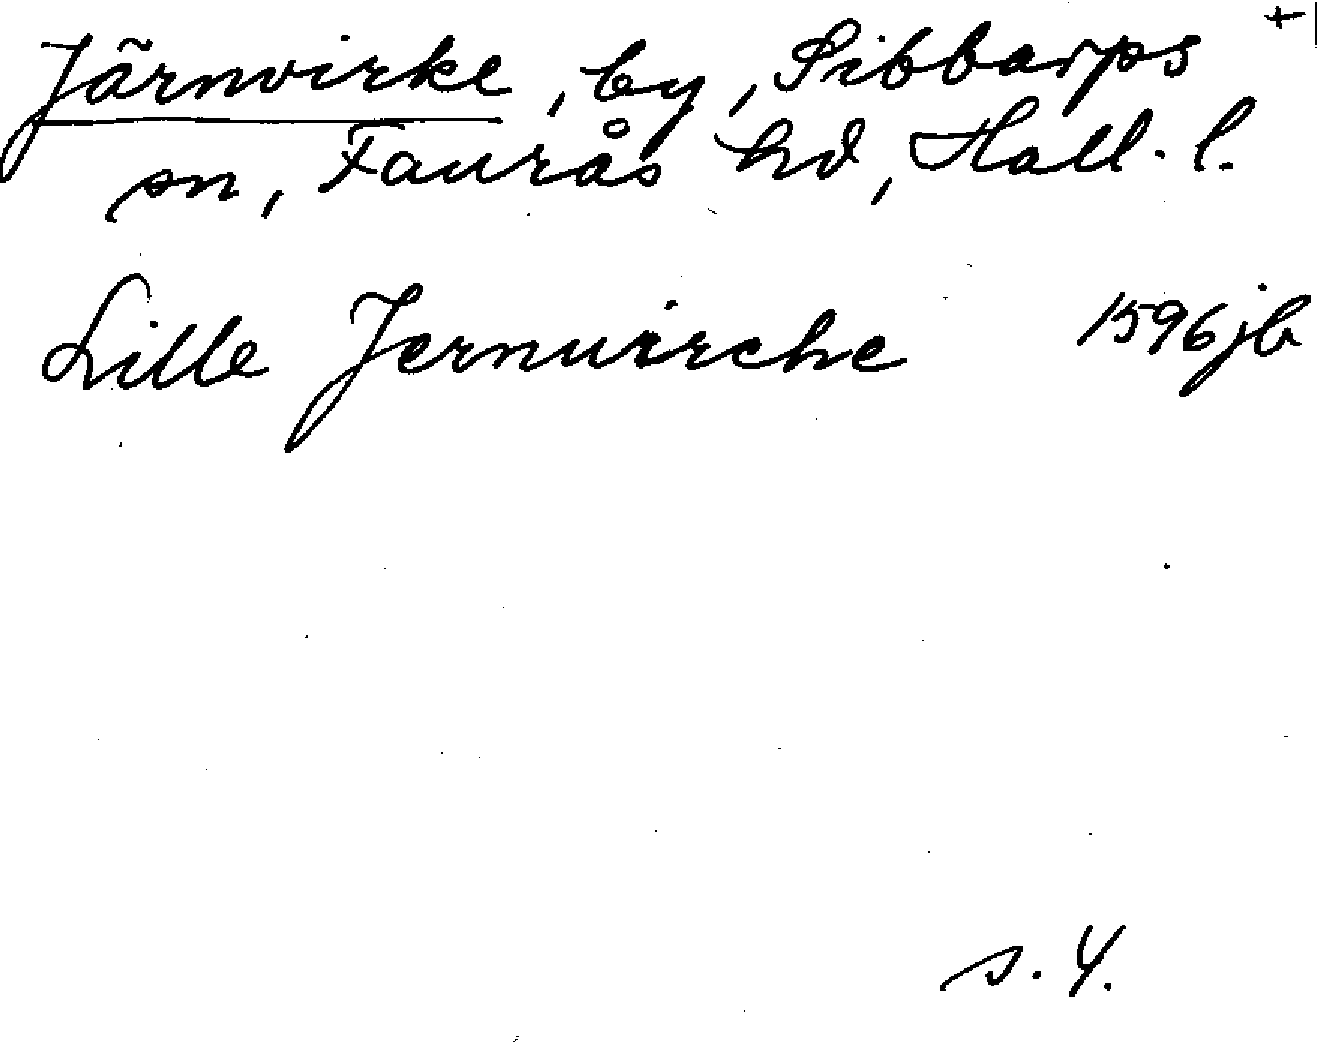 Järnvirke, by, Sibbarps +
sn, Faurås hd, Hall. l.
Lille Jernuirche 1596 jb
s. 4.